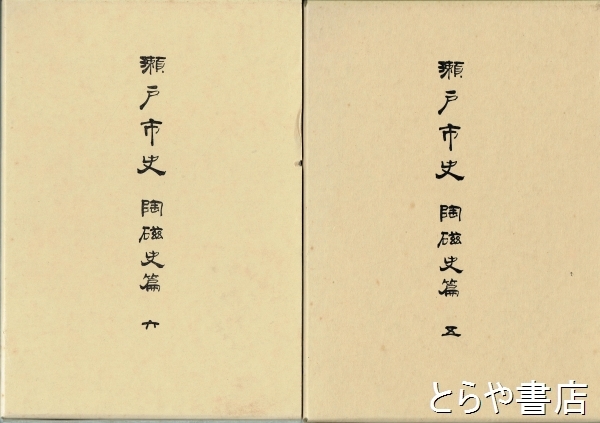 瀬戸市史 陶磁史篇 五
瀬戸市史 陶磁史篇 六
とらや書店